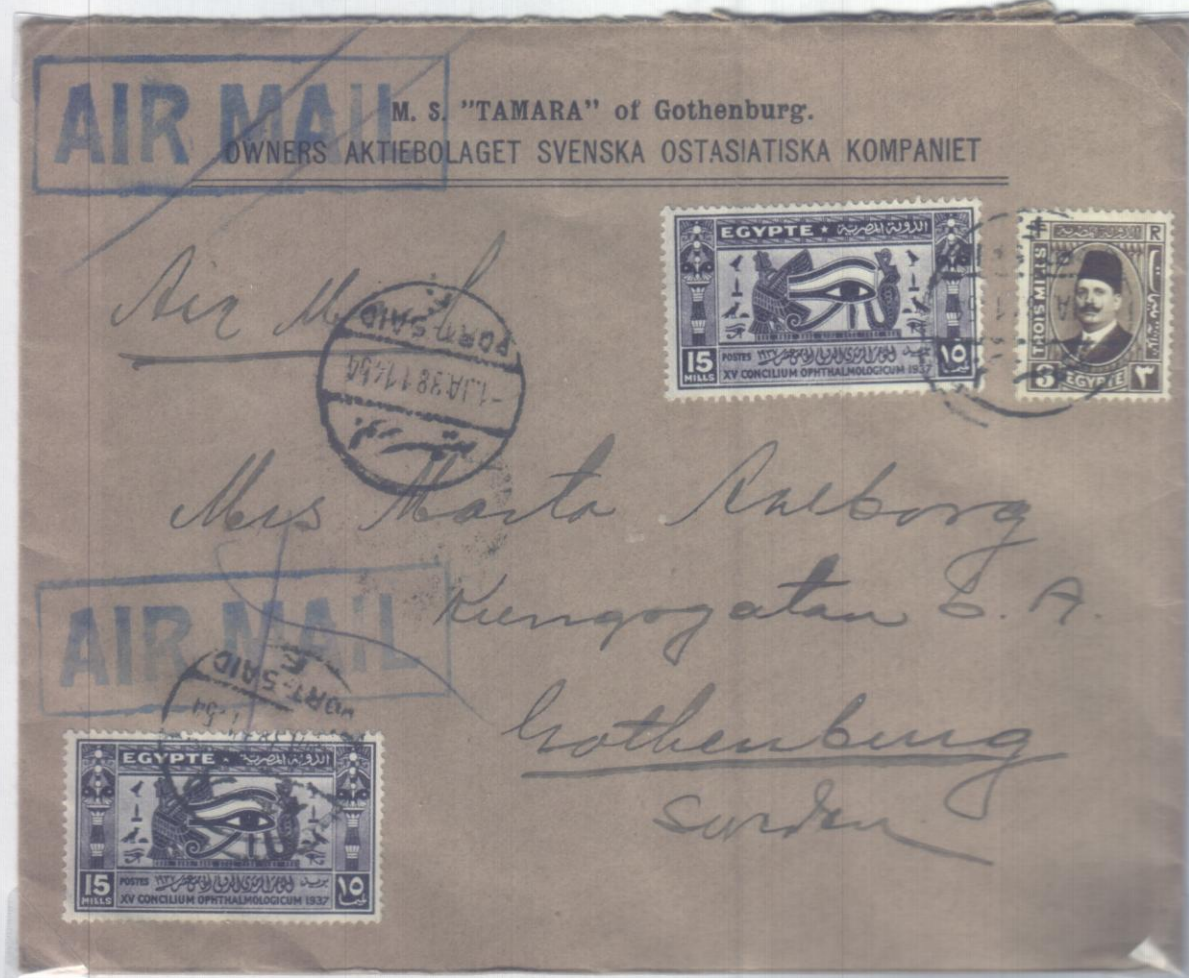 AIR MAIL
M. S. "TAMARA" of Gothenburg.
OWNERS AKTIEBOLAGET SVENSKA OSTASIATISKA KOMPANIET
Air Mail
PORT-SAID
-1.JA.38.11:54
بورسعيد
EGYPTE ★ الدولة المصرية
15 MILLS ١٥
POSTES ١٩٣٧
XV CONCILIUM OPHTHALMOLOGICUM 1937
TROIS MILLS
3 EGYPTE ٣
Mrs Marta Aalborg
Kungsgatan 6. A.
Gothenburg
AIR MAIL
PORT-SAID
EGYPTE ★ الدولة المصرية
15 MILLS ١٥
POSTES ١٩٣٧
XV CONCILIUM OPHTHALMOLOGICUM 1937